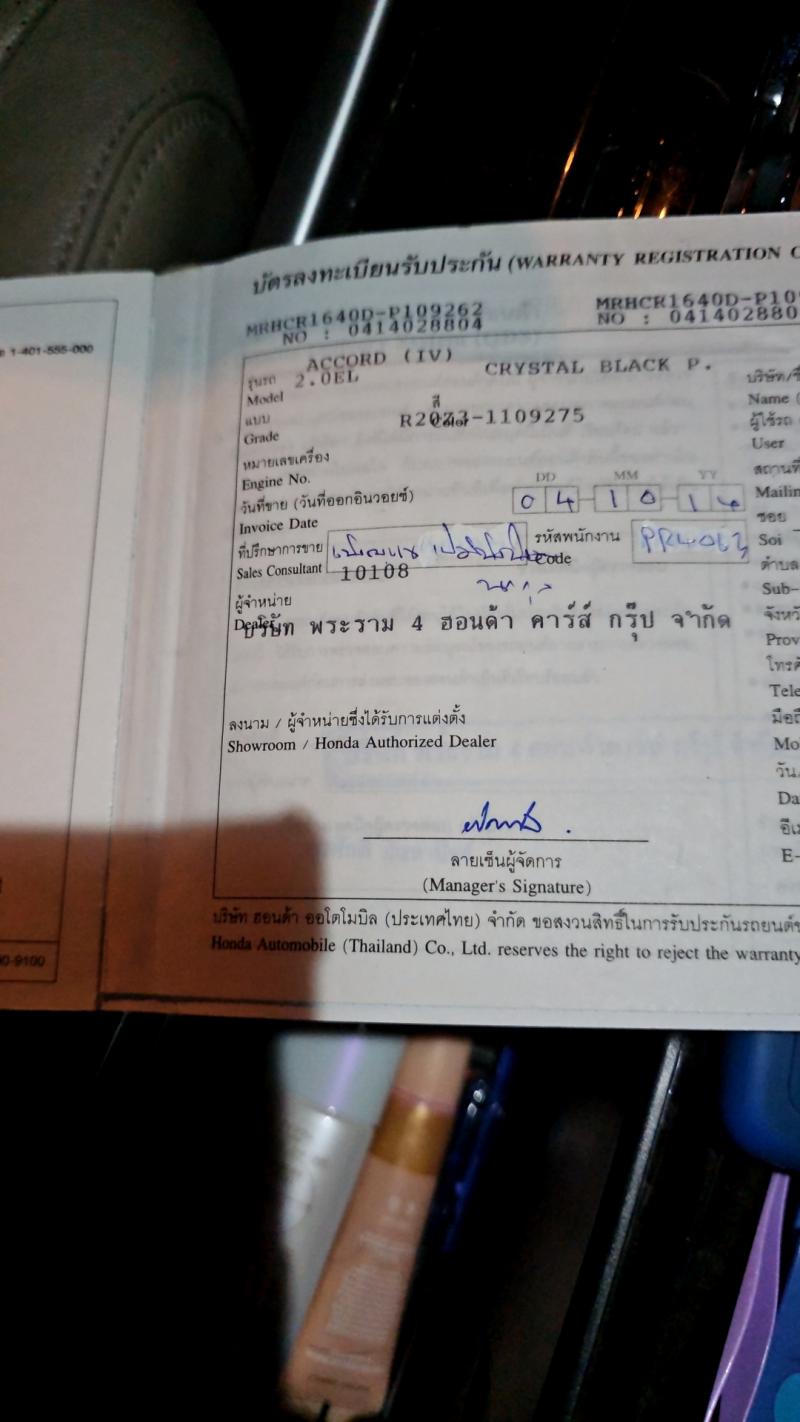 1-401-555-000
บัตรลงทะเบียนรับประกัน (WARRANTY REGISTRATION C
MRHCR1640D-P109262
NO : 0414028804
MRHCR1640D-P10
NO : 041402880
ACCORD (IV)
รุ่นรถ 2.0EL
Model
CRYSTAL BLACK P.
แบบ
Grade
สี
R20Z3-1109275
หมายเลขเครื่อง
Engine No.
DD MM YY
วันที่ขาย (วันที่ออกอินวอยซ์) 04 10 14
Invoice Date
ที่ปรึกษาการขาย
Sales Consultant 10108
รหัสพนักงาน
Code
ผู้จำหน่าย
Dealer
บริษัท พระราม 4 ฮอนด้า คาร์ส์ กรุ๊ป จำกัด
ลงนาม / ผู้จำหน่ายซึ่งได้รับการแต่งตั้ง
Showroom / Honda Authorized Dealer
ลายเซ็นผู้จัดการ
(Manager's Signature)
บริษัท ฮอนด้า ออโตโมบิล (ประเทศไทย) จำกัด ขอสงวนสิทธิ์ในการรับประกันรถยนต์
Honda Automobile (Thailand) Co., Ltd. reserves the right to reject the warranty
บริษัท/
Name (
ผู้ใช้รถ
User
สถานที่
Mailin
ซอย
Soi
ตำบล
Sub-
จังหวั
Prov
โทรศั
Tele
มือถื
Mo
วัน
Da
อีเม
E-
0-9100